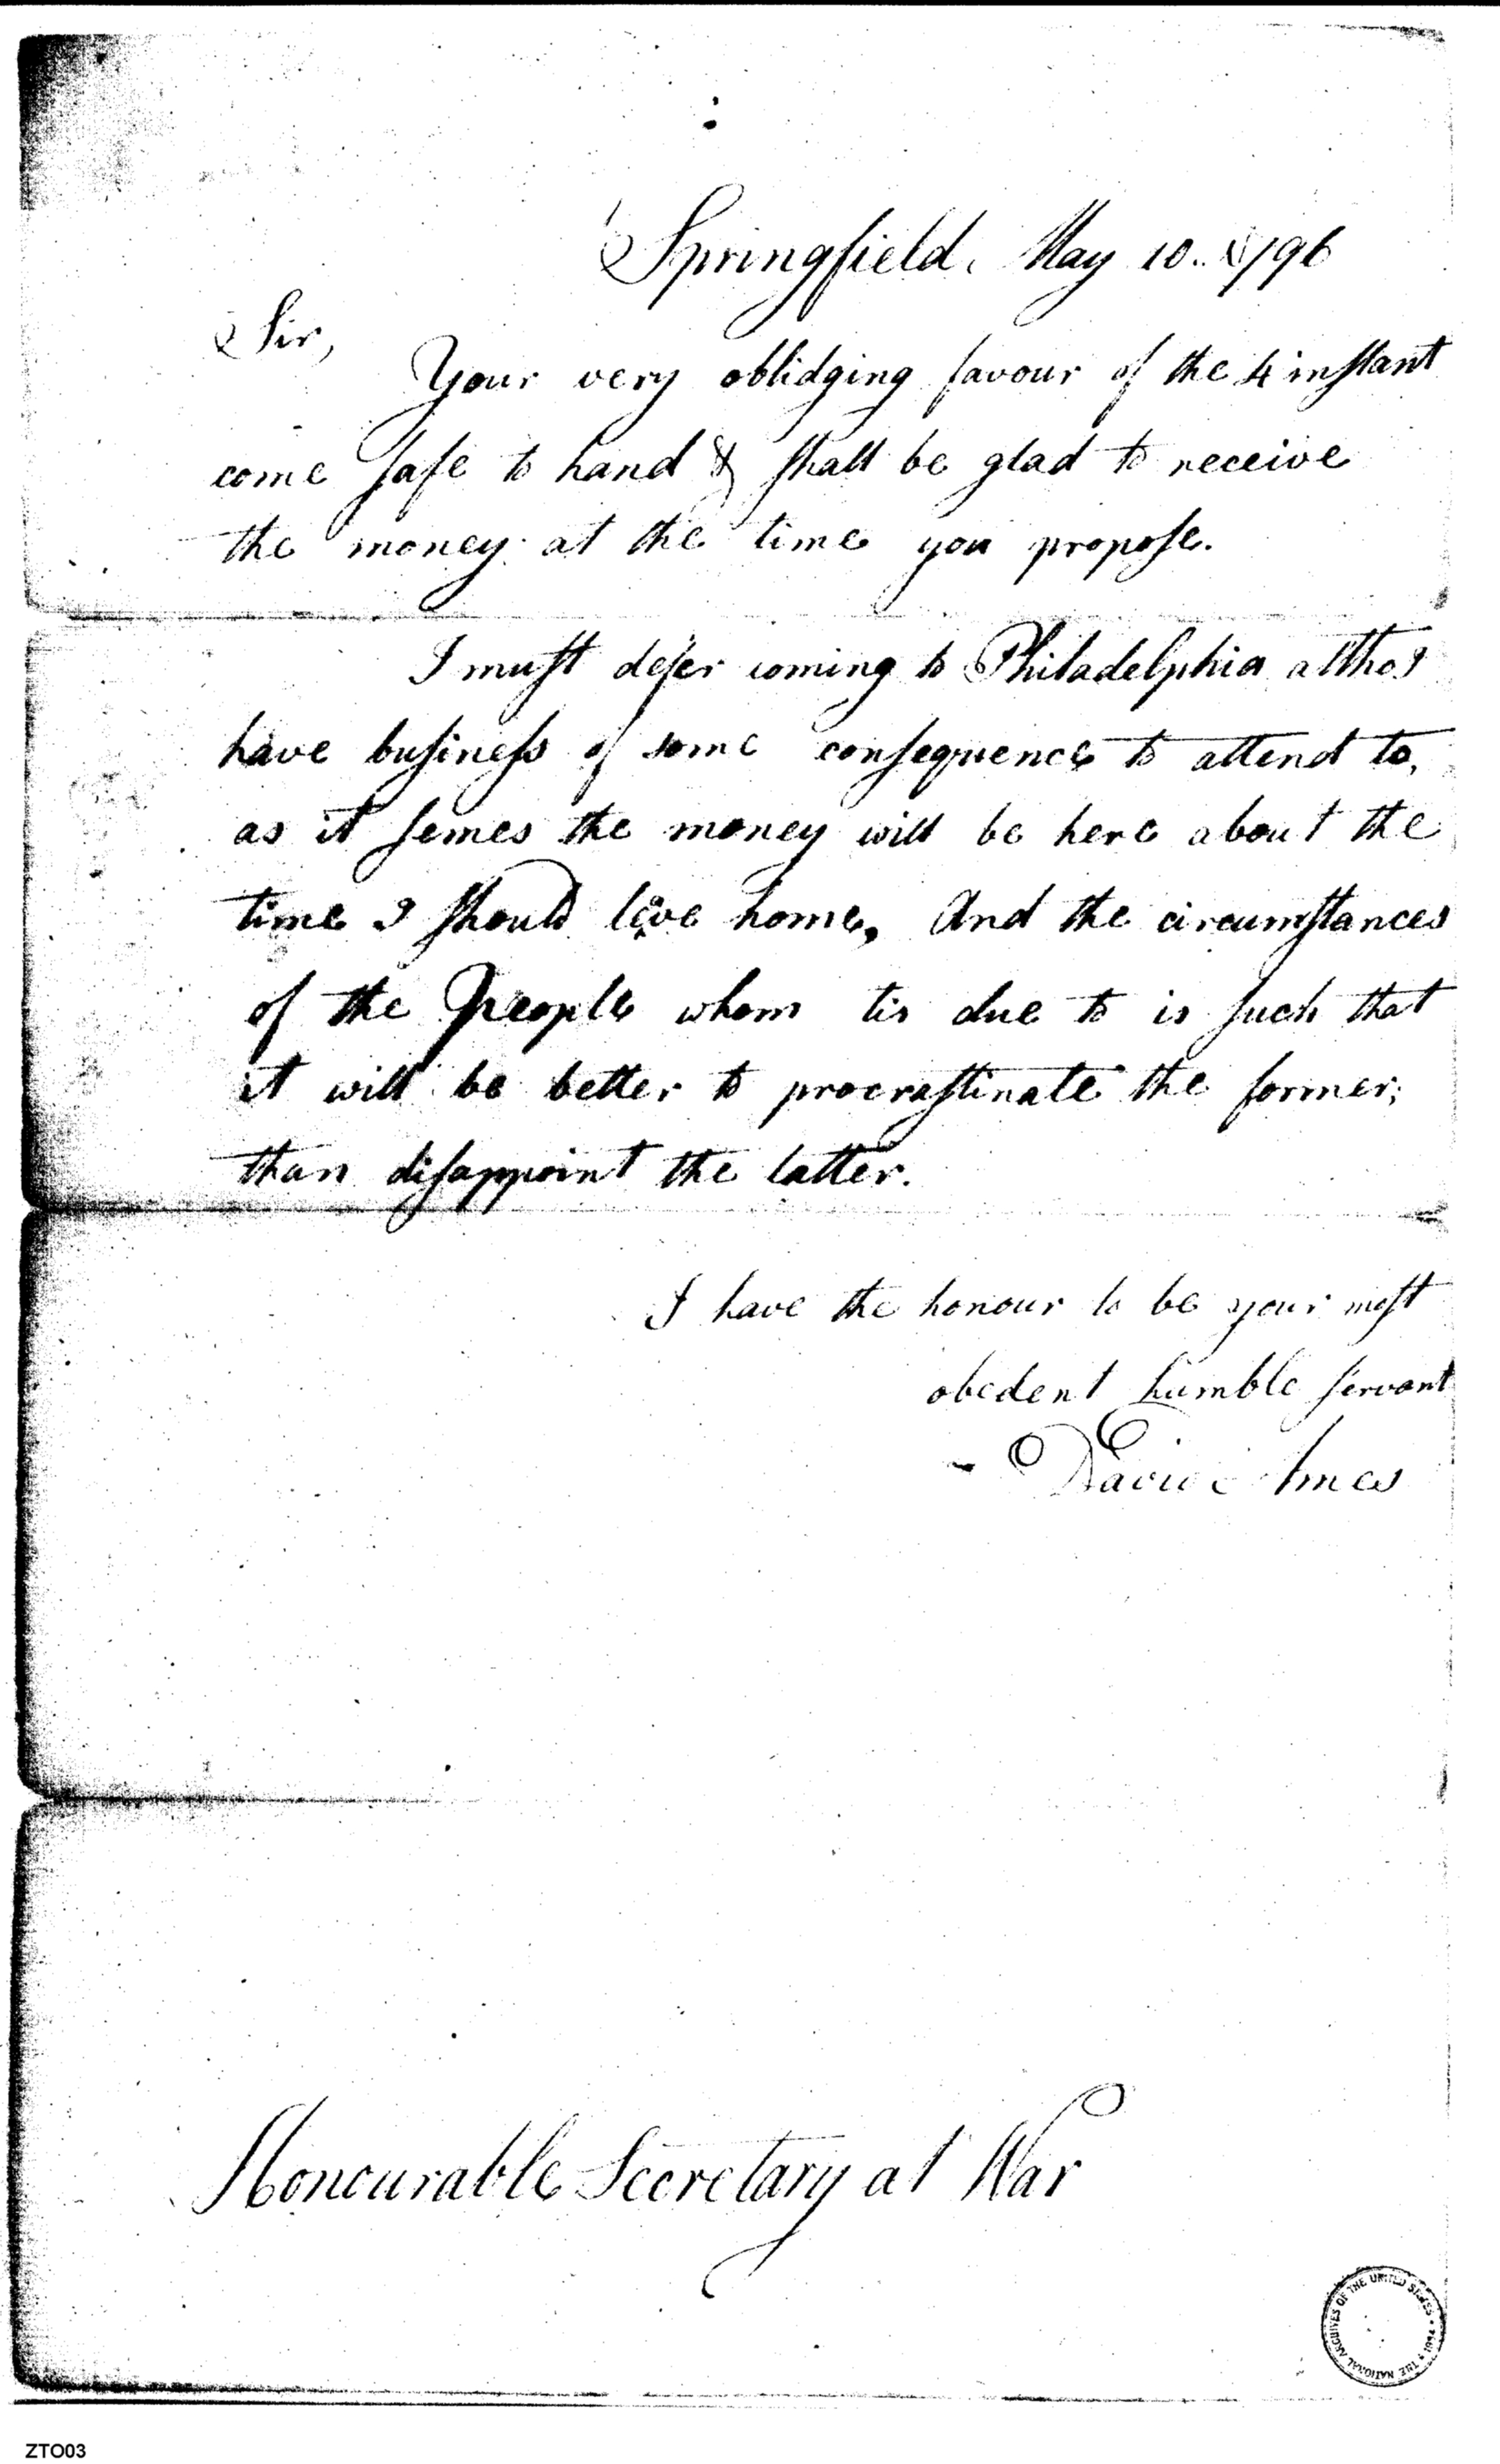 Springfield, May 10.. 1796
Sir,
Your very oblidging favour of the 4 instant
come safe to hand & shall be glad to receive
the money at the time you propose.
I must defer coming to Philadelphia altho I
have business of some consequence to attend to,
as it semes the money will be here about the
time I should leve home, And the circumstances
of the People whom tis due to is such that
it will be better to procrastinate the former;
than disappoint the latter.
I have the honour to be your most
obedent humble servant
David Ames
Honourable Secretary at War
THE NATIONAL ARCHIVES OF THE UNITED STATES • 1934 •
ZTO03